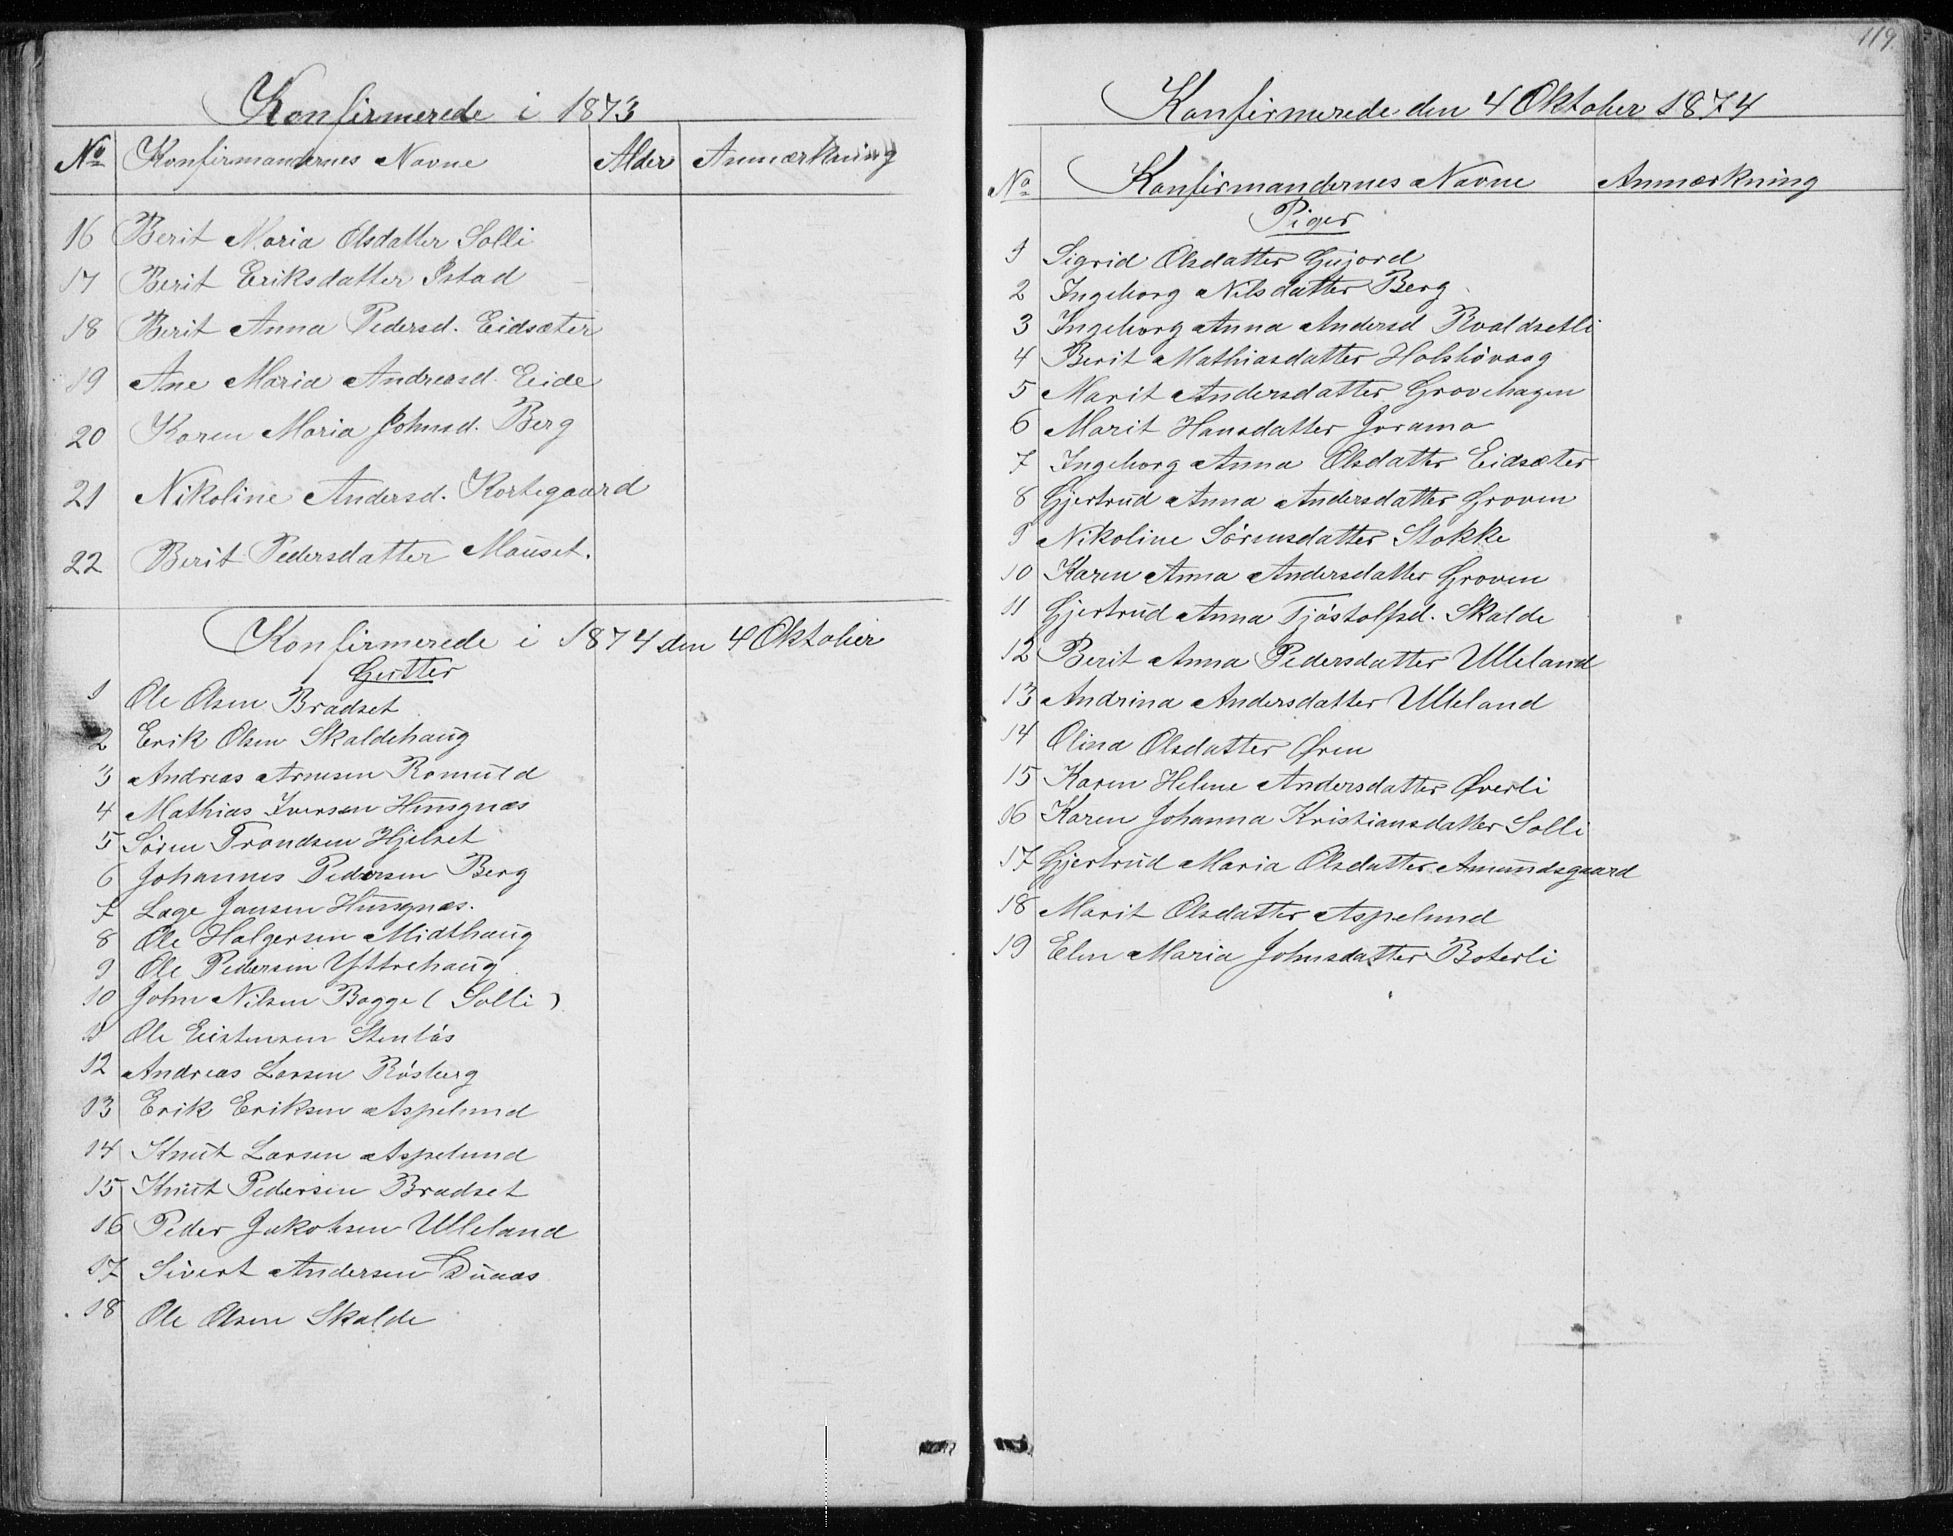 Konfirmerede i 1873
No Konfirmandernes Navne Alder Anmærkning
16 Berit Maria Olsdatter Solli
17 Berit Eriksdatter Istad
18 Berit Anna Pedersd. Eidsæter
19 Ane Maria Andreasd. Eide
20 Karen Maria Johnsd. Berg
21 Nikoline Andersd. Kortegaard
22 Berit Pedersdatter Mauset.
Konfirmerede i 1874 den 4 Oktober
Gutter
1 Ole Olsen Bradset
2 Erik Olsen Skaldehaug
3 Andreas Arnesen Romuld
4 Mathias Iversen Hungnæs
5 Sören Trondsen Hjelset
6 Johannes Pedersen Berg
7 Lage Jansen Hungnæs.
8 Ole Holgersen Midthaug
9 Ole Pedersen Yttrehaug
10 John Nilsen Bagge (Solli)
11 Ole Eistensen Stenlös
12 Andreas Larsen Rösberg
13 Erik Eriksen Aspelund
14 Knut Larsen Aspelund
15 Knut Pedersen Bradset
16 Peder Jakobsen Ulleland
17 Sivert Andersen
18 Ole Olsen Skalde
119.
Konfirmerede den 4 Oktober 1874
No Konfirmandernes Navne Anmærkning
Piger
1 Sigrid Olsdatter Gujord
2 Ingeborg Nilsdatter Berg
3 Ingeborg Anna Andersd Roaldsetli
4 Berit Mathiasdatter Holshövaag
5 Marit Andersdatter Grovehagen
6 Marit Hansdatter Joramo
7 Ingeborg Anna Olsdatter Eidsæter
8 Gjertrud Anna Andersdatter Groven
9 Nikoline Sörensdatter Stokke
10 Karen Anna Andersdatter Groven
11 Gjertrud Anna Tjöstolfsd. Skalde
12 Berit Anna Pedersdatter Ulleland
13 Andrina Andersdatter Ulleland
14 Olina Olsdatter Øren
15 Karen Helene Andersdatter Øverli
16 Karen Johanna Kristiansdatter Solli
17 Gjertrud Maria Olsdatter Amundsgaard
18 Marit Olsdatter Aspelund
19 Elen Maria Johnsdatter Boterli